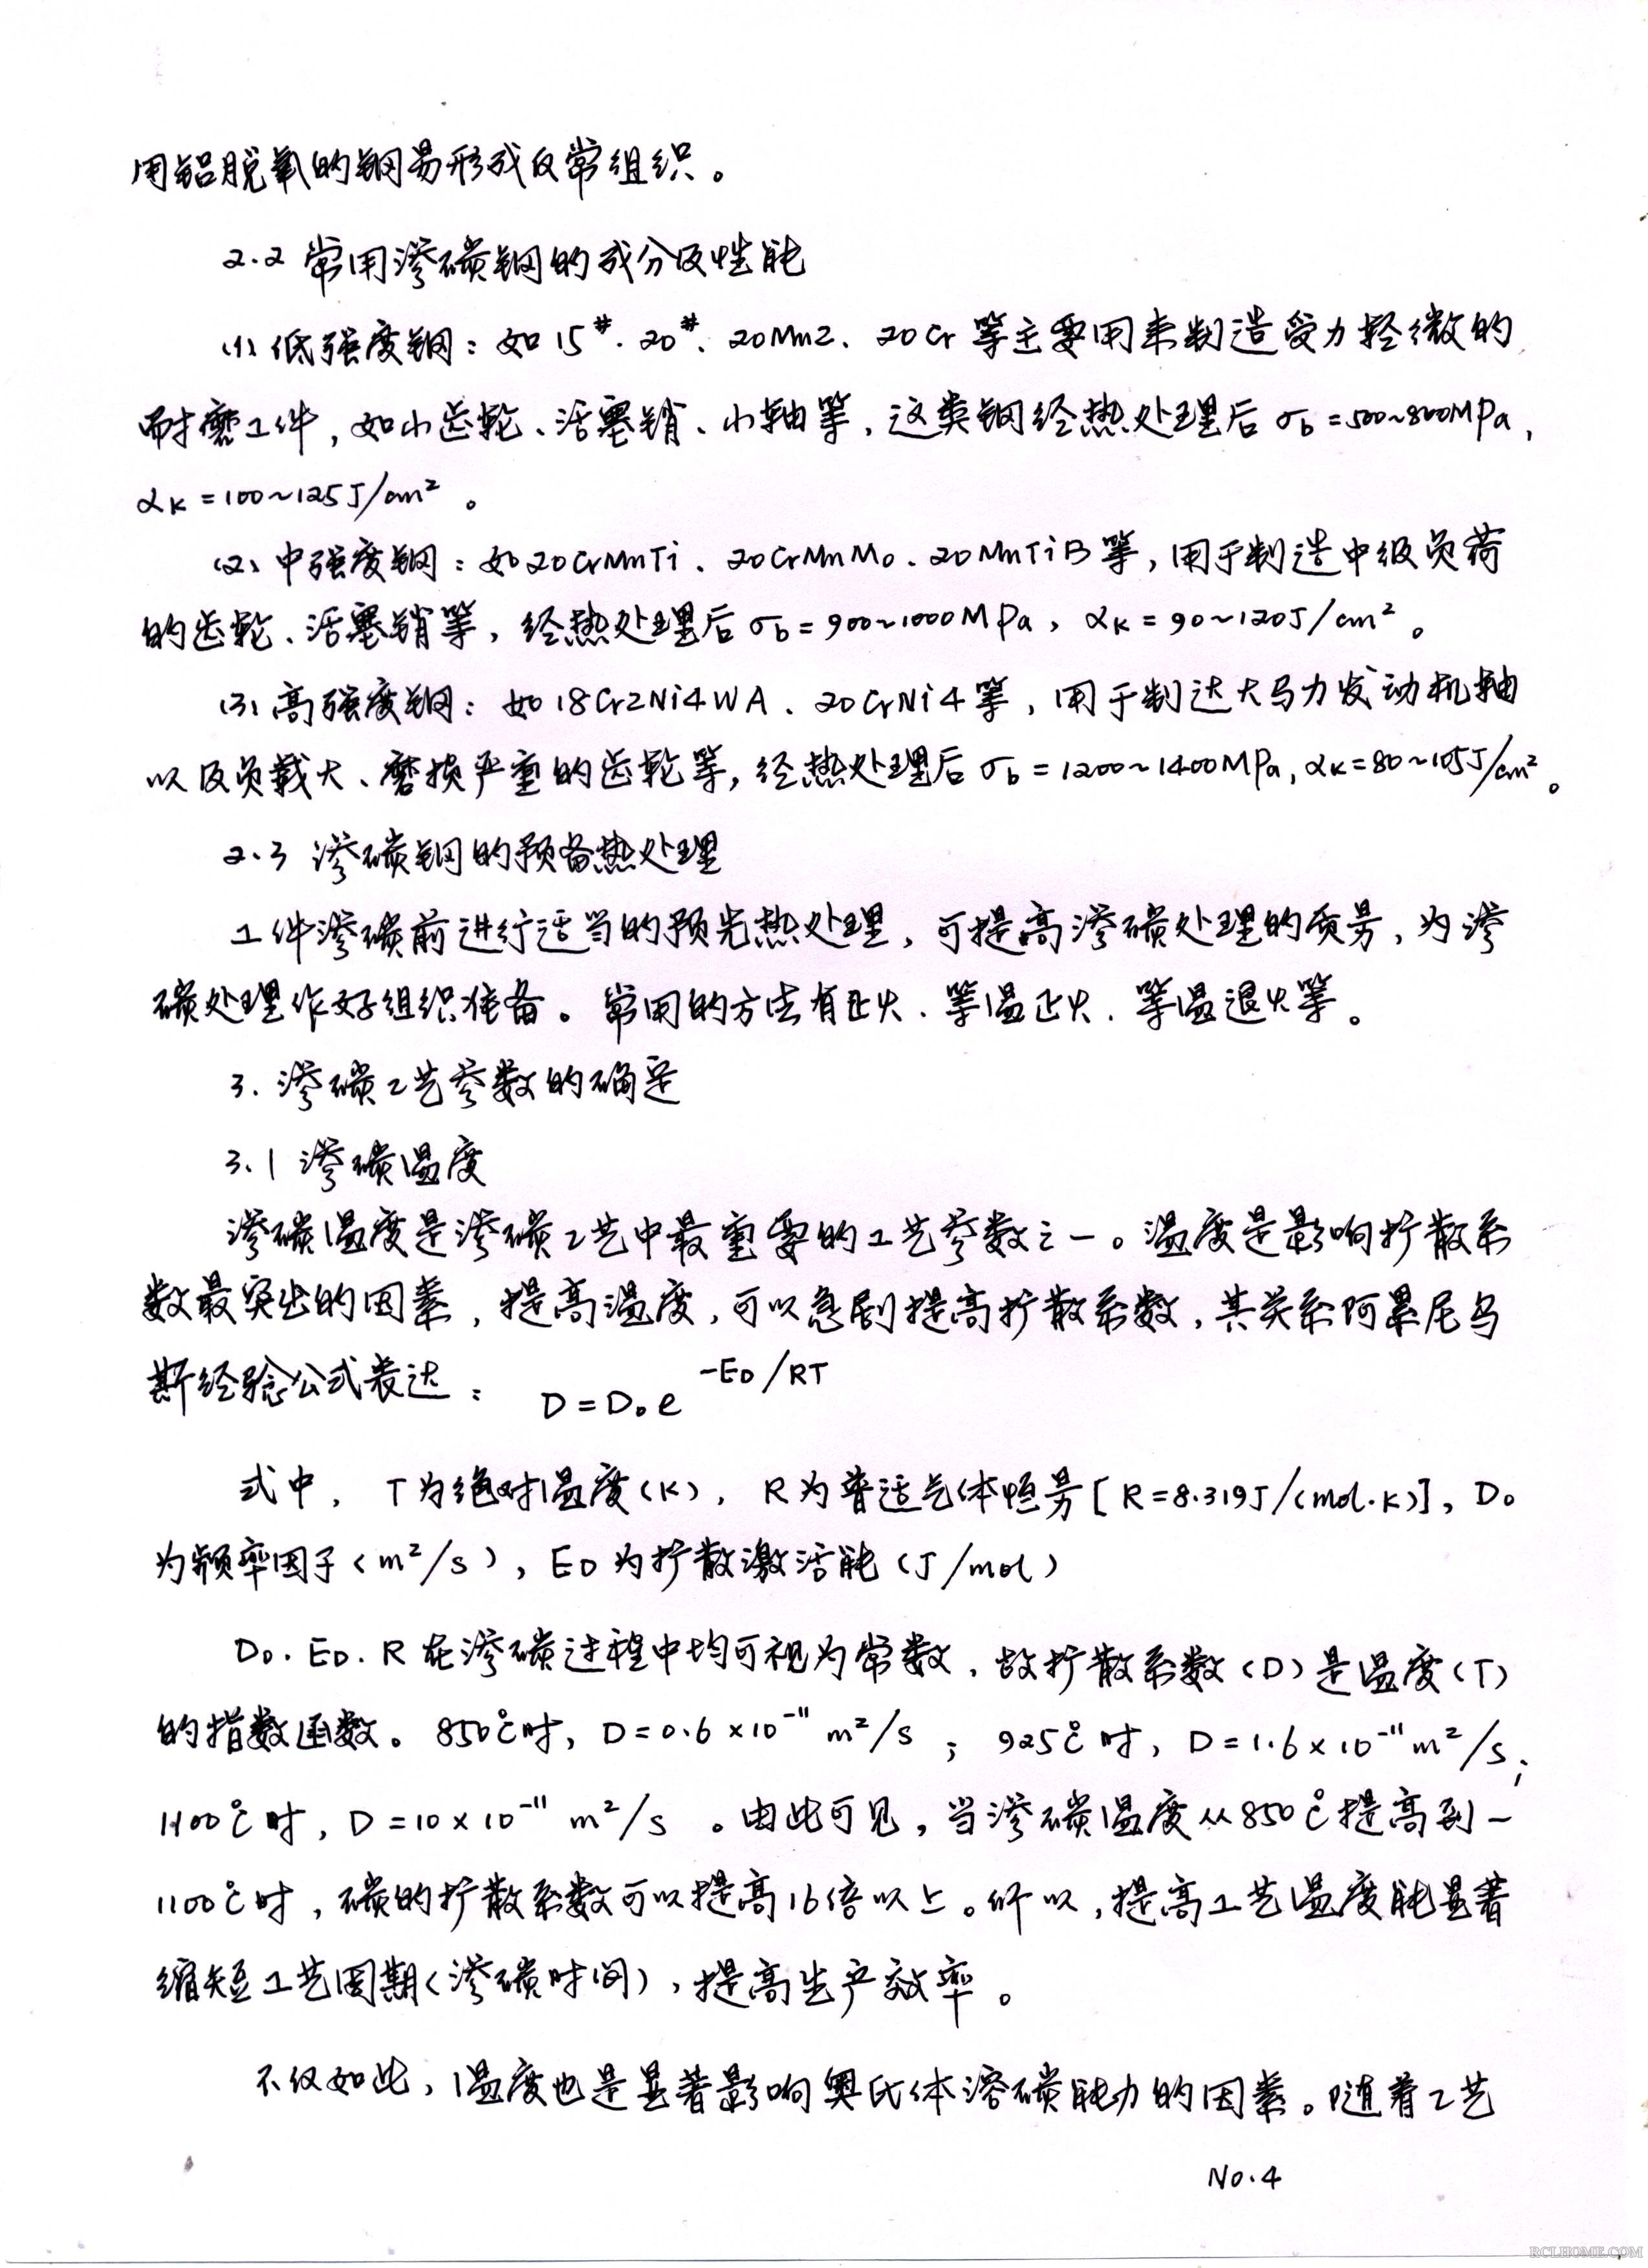 用铝脱氧的钢易形成反常组织。
2.2 常用渗碳钢的成分及性能
(1) 低强度钢：如15#、20#、20Mn2、20Cr等主要用来制造受力轻微的
耐磨工件，如小齿轮、活塞销、小轴等，这类钢经热处理后σb=500~800MPa，
αK=100~125J/cm²。
(2) 中强度钢：如20CrMnTi、20CrMnMo、20MnTiB等，用于制造中级负荷
的齿轮、活塞销等，经热处理后σb=900~1000MPa，αK=90~120J/cm²。
(3) 高强度钢：如18Cr2Ni4WA、20CrNi4等，用于制达大马力发动机轴
以及负载大、磨损严重的齿轮等，经热处理后σb=1200~1400MPa，αK=80~105J/cm²。
2.3 渗碳钢的预备热处理
工件渗碳前进行适当的预先热处理，可提高渗碳处理的质量，为渗
碳处理作好组织准备。常用的方法有正火、等温正火、等温退火等。
3. 渗碳工艺参数的确定
3.1 渗碳温度
渗碳温度是渗碳工艺中最重要的工艺参数之一。温度是影响扩散系
数最突出的因素，提高温度，可以急剧提高扩散系数，其关系阿累尼乌
斯经验公式表达： D=D₀e^(-ED/RT)
式中，T为绝对温度(K)，R为普适气体恒量[R=8.319J/(mol·K)]，D₀
为频率因子(m²/s)，ED为扩散激活能(J/mol)
D₀、ED、R在渗碳过程中均可视为常数，故扩散系数(D)是温度(T)
的指数函数。850℃时，D=0.6×10⁻¹¹ m²/s；925℃时，D=1.6×10⁻¹¹ m²/s；
1100℃时，D=10×10⁻¹¹ m²/s。由此可见，当渗碳温度从850℃提高到一
1100℃时，碳的扩散系数可以提高16倍以上。所以，提高工艺温度能显著
缩短工艺周期(渗碳时间)，提高生产效率。
不仅如此，温度也是显著影响奥氏体溶碳能力的因素。随着工艺
No.4
RCLHOME.COM